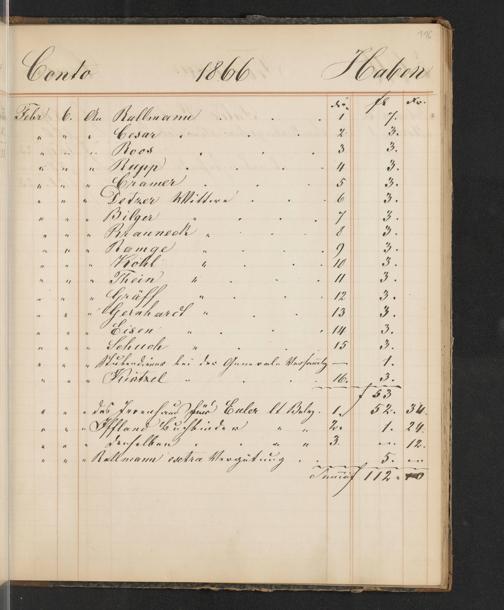 116
Conto 1866 Haben
No. fl xr.
Febr 6. An Kallmann 1 7.
" " " Cesar 2 3.
" " " Roos 3 3.
" " " Rupp 4 3.
" " " Cramer 5 3.
" " " Detzer Wittwe 6 3.
" " " Bilger " 7 3.
" " " Krauneck " 8 3.
" " " Ramge " 9 3.
" " " Kohl " 10 3.
" " " Thein " 11 3.
" " " Gräff " 12 3.
" " " Gerhardt " 13 3.
" " " Eisen " 14 3.
" " " Schuch " 15 3.
" " " bei der Generale — 1.
" " " Küntzel " 16. 3.
f 53
" " " das Irrenhaus für Euler lt Beleg. 1. 52. 34.
" " " Iffland Buchbinder " " 2. 1. 24.
" " " denselben " " 3. — 12.
" " " Kallmann extra Vergütung 5. —
Summa f 112. 10